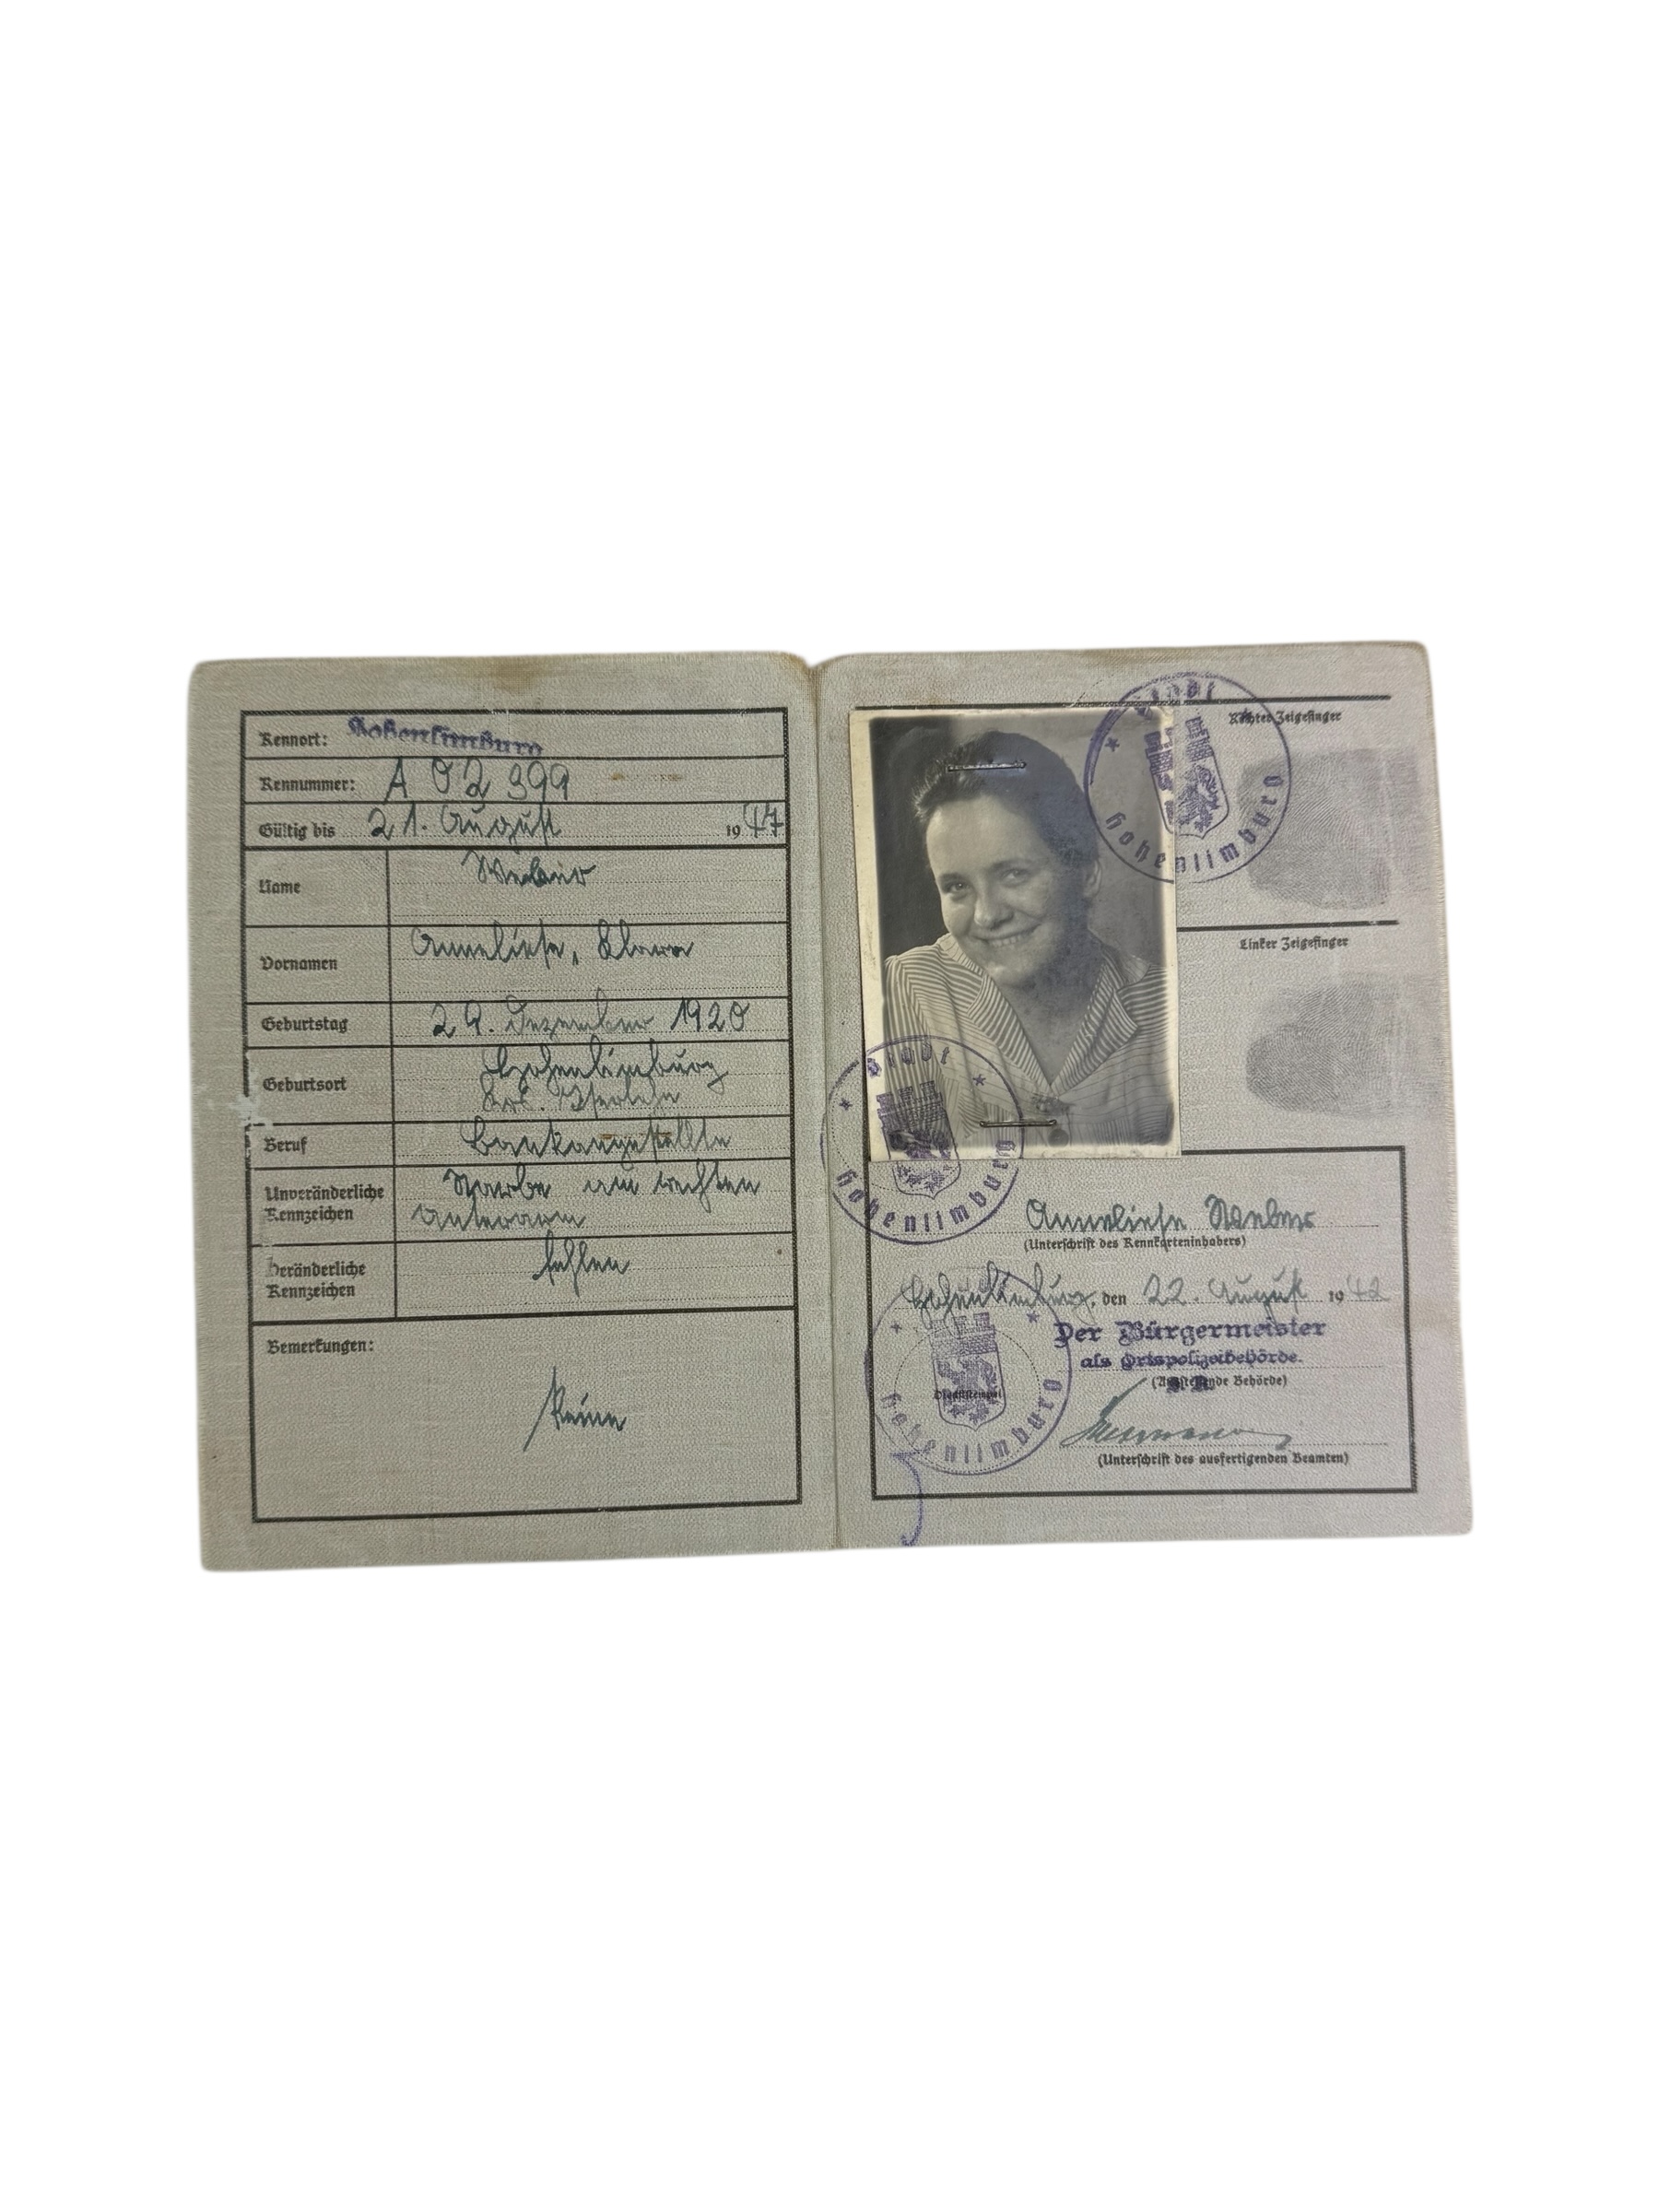 Kennort: Hohenlimburg
Kennummer: A 02399
Gültig bis 21. August 1947
Name Weber
Vornamen Anneliese, Klara
Geburtstag 29. Dezember 1920
Geburtsort Hohenlimburg
Krs. Iserlohn
Beruf Bankangestellte
Unveränderliche Kennzeichen Narbe am rechten
Unterarm
Veränderliche Kennzeichen fehlen
Bemerkungen:
Keine
Rechter Zeigefinger
Linker Zeigefinger
Stadt Hohenlimburg
Stadt Hohenlimburg
Anneliese Weber
(Unterschrift des Kennkarteninhabers)
Hohenlimburg, den 22. August 1942
Der Bürgermeister
als Ortspolizeibehörde.
(Ausstellende Behörde)
Dienststempel
Hohenlimburg
(Unterschrift des ausfertigenden Beamten)